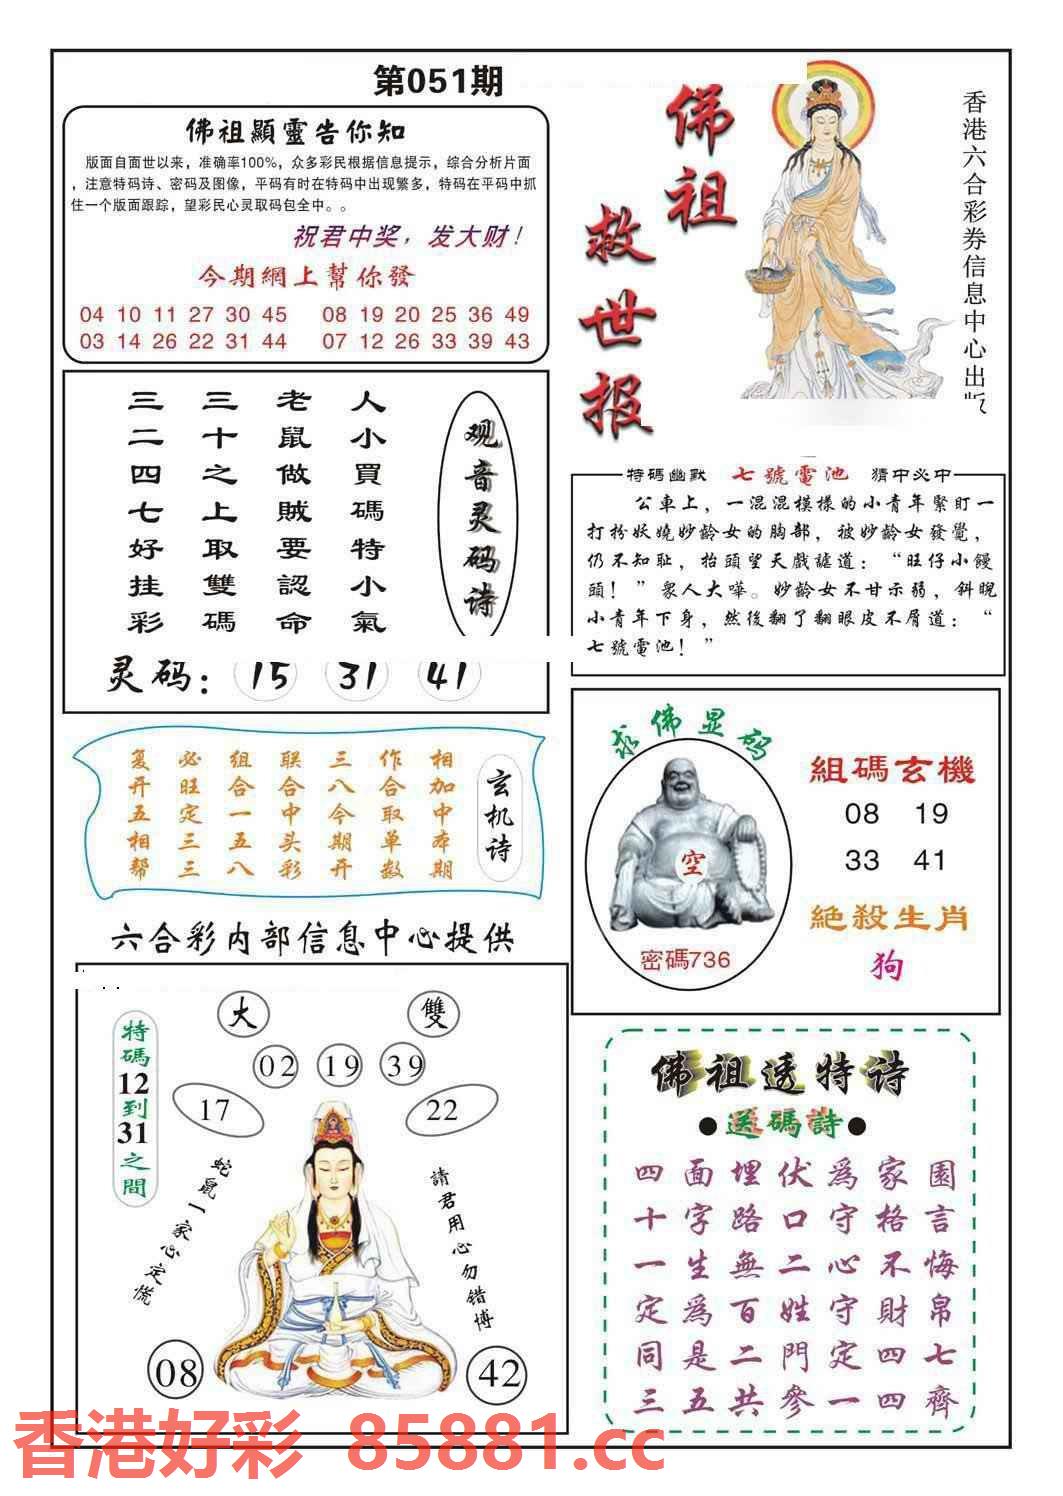 第051期
佛祖顯靈告你知
版面自面世以来，准确率100%，众多彩民根据信息提示，综合分析片面
，注意特码诗、密码及图像，平码有时在特码中出现繁多，特码在平码中抓
住一个版面跟踪，望彩民心灵取码包全中。。
祝君中奖，发大财！
今期網上幫你發
04 10 11 27 30 45 08 19 20 25 36 49
03 14 26 22 31 44 07 12 26 33 39 43
佛祖
救世报
香港六合彩券信息中心出版
观音灵码诗
人小買碼特小氣
老鼠做賊要認命
三十之上取雙碼
三二四七好挂彩
灵码： 15 31 41
特碼幽默 七號電池 猜中必中
公車上，一混混模樣的小青年緊盯一
打扮妖嬈妙齡女的胸部，被妙齡女發覺，
仍不知耻，抬頭望天戲謔道：“旺仔小饅
頭！”衆人大嘩。妙齡女不甘示弱，斜睨
小青年下身，然後翻了翻眼皮不屑道：“
七號電池！”
玄机诗
相加中本期
作合取单数
三八今期开
联合中头彩
组合一五八
必旺定三三
复开五相帮
求佛显码
空
密碼736
組碼玄機
08 19
33 41
絕殺生肖
狗
六合彩内部信息中心提供
大 雙
02 19 39
17 22
特碼12到31之間
蛇鼠一家心定慌
請君用心勿错博
08 42
佛祖透特诗
●送碼詩●
四面埋伏爲家園
十字路口守格言
一生無二心不悔
定爲百姓守財帛
同是二門定四七
三五共參一四齊
香港好彩 85881.cc